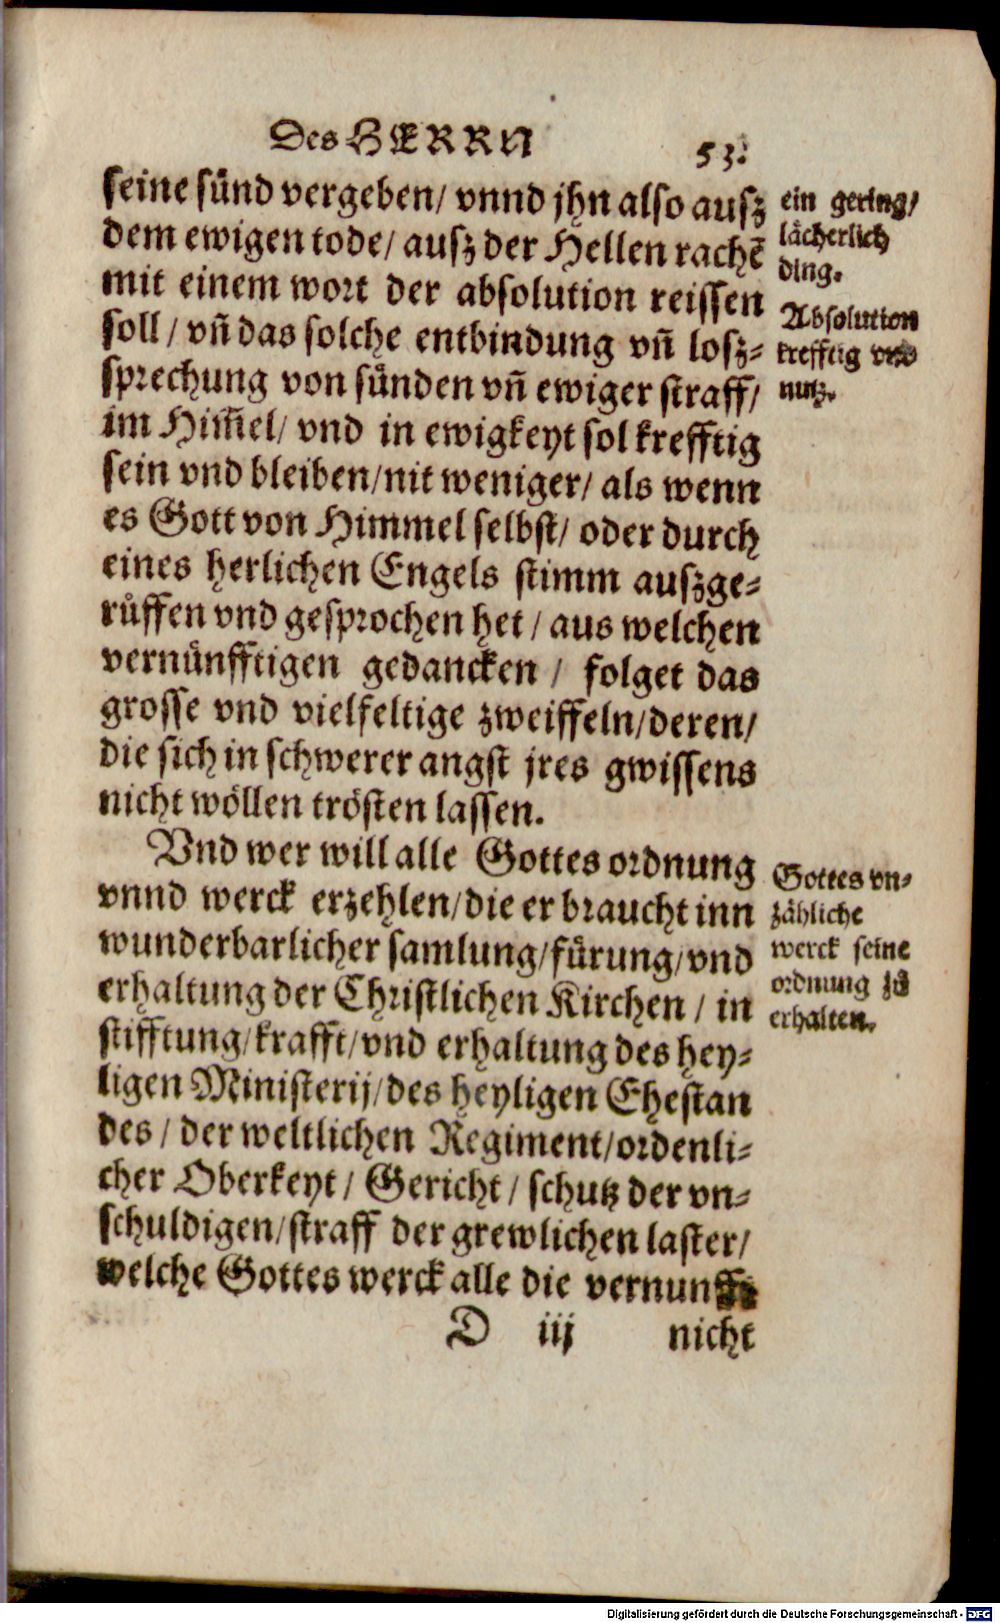 Des HERRN
53.
seine sünd vergeben/ vnnd jhn also ausz
dem ewigen tode/ ausz der Hellen rachē
mit einem wort der absolution reissen
soll/ vñ das solche entbindung vñ losz-
sprechung von sünden vñ ewiger straff/
im Him̃el/ vnd in ewigkeyt sol krefftig
sein vnd bleiben/ nit weniger/ als wenn
es Gott von Himmel selbst/ oder durch
eines herlichen Engels stimm auszge-
růffen vnd gesprochen het/ aus welchen
vernünfftigen gedancken/ folget das
grosse vnd vielfeltige zweiffeln/ deren/
die sich in schwerer angst jres gwissens
nicht wöllen trösten lassen.
Vnd wer will alle Gottes ordnung
vnnd werck erzehlen/ die er braucht inn
wunderbarlicher samlung/ fürung/ vnd
erhaltung der Christlichen Kirchen/ in
stifftung/ krafft/ vnd erhaltung des hey-
ligen Ministerij/ des heyligen Ehestan
des/ der weltlichen Regiment/ ordenli-
cher Oberkeyt/ Gericht/ schutz der vn-
schuldigen/ straff der grewlichen laster/
welche Gottes werck alle die vernunfft
D iij nicht
ein gering/
lächerlich
ding.
Absolution
krefftig vnd
nutz.
Gottes vn-
zähliche
werck seine
ordnung zů
erhalten.
Digitalisierung gefördert durch die Deutsche Forschungsgemeinschaft - DFG